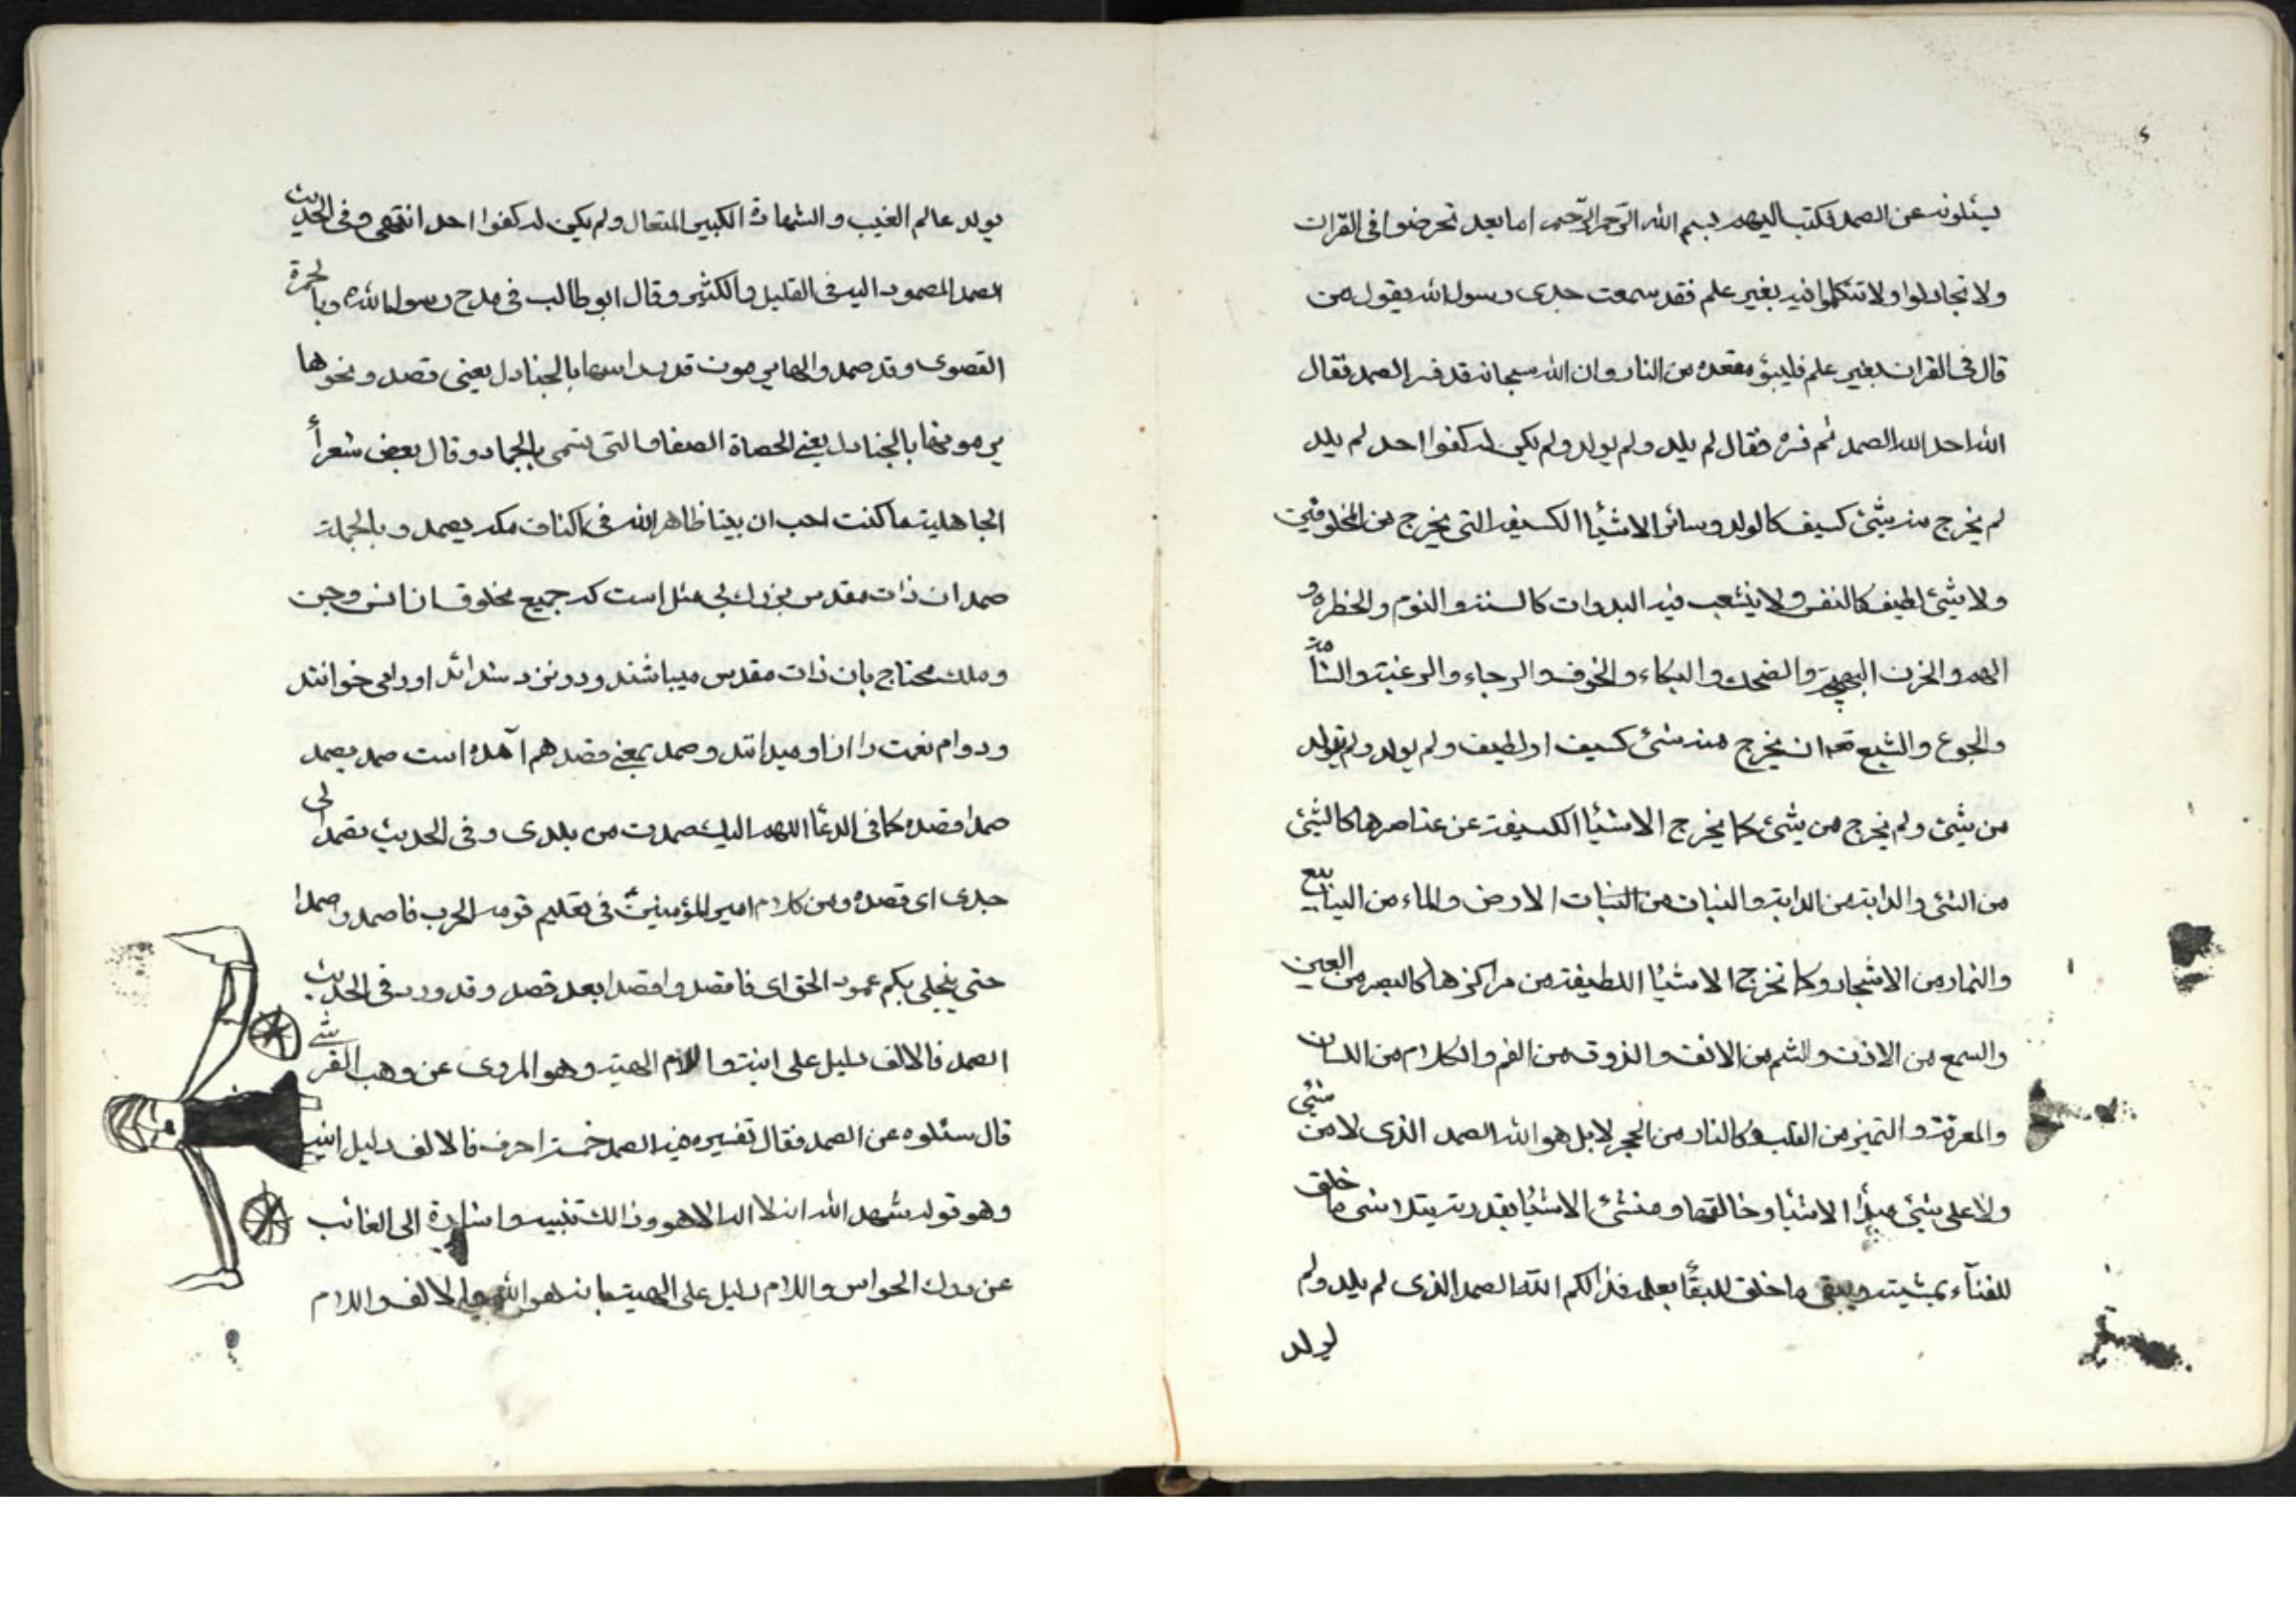 يسئلونه عن الصمد فكتب اليهم بسم الله الرحمن الرحيم اما بعد تخوضوا فى القران
ولا تجادلوا ولا تتكلموا فيه بغير علم فقد سمعت جدى رسول الله يقول من
قال فى القران بغير علم فليبؤ مقعده من النار وان الله سبحانه قد فسر الصمد فقال
الله احد الله الصمد ثم فسره فقال لم يلد ولم يولد ولم يكن له كفوا احد لم يلد
لم يخرج منه شئ كسيف كالولد وسائر الاشيأ الكسيفه التى يخرج من المخلوقين
ولا شئ لطيف كالنفس ولا ينشعب فيه البدوات كالسنة والنوم والخطره و
الهم والحزن البهجه والضحك والبكاء والخوف والرجاء والرغبة والسأمة
والجوع والشبع تع ان يخرج منه شئ كسيف او لطيف ولم يولد ولم يتولد
من شئ ولم يخرج من شئ كما يخرج الاشيأ الكسيفة عن عناصرها كالشئ
من الشئ والدابة من الدابة والنبات من النبات الارض والماء من الينابيع
والثمار من الاشجار وكما تخرج الاشيأ اللطيفة من مراكزها كالبصر من العين
والسمع من الاذن والشم من الانف والذوق من الفم والكلام من اللسان
والمعرفة والتميز من القلب وكالنار من الحجر لا بل هو الله الصمد الذى لا من شئ
ولا على شئ مبدأ الاشيأ وخالقها ومنشئ الاشيأ بقدرته يتلاشى ما خلق
للفنآء بمشيته ويبقى ما خلق للبقأ بعلمه فذالكم الله الصمد الذى لم يلد ولم
يولد
يولد عالم الغيب والشهادة الكبير المتعال ولم يكن له كفوا احد انتهى وفى الحديث
الصمد المصمود اليه فى القليل والكثير وقال ابو طالب فى مدح رسول الله وبالجمرة
القصوى وقد صمدوا لها يرمون قد راسها بالجنادل يعنى قصد ونحوها
يرمونها بالجنادل يعنى الحصاة الصغار التى تسمى بالجمار وقال بعض شعرأ
الجاهلية ما كنت احب ان بيتا ظاهرا لله فى اكناف مكه يصمد وبالجملة
صمد ان ذات مقدس بزرك بى مثل است كه جميع مخلوقات از انس وجن
وملك محتاج بان ذات مقدس ميباشند ودر نزد شدائد اورا مى خوانند
ودوام نعمت را از او ميدانند وصمد بمعنى قصد هم آمده است صمد يصمد
صمدا قصده كما فى الدعأ اللهم اليك صمدت من بلدى وفى الحديث تصمد الى
جدى اى قصده ومن كلام امير المؤمنين فى تعليم قومه الحرب فاصمدوا صمدا
حتى ينجلى بكم عمود الحق اى فاقصدوا قصدا بعد قصد وقد ورد فى الحديث
الصمد فالالف دليل على انيته واللام الهيته وهو المروى عن وهب القرشى
قال سئلوه عن الصمد فقال تفسيره فيه الصمد خمسة احرف فالالف دليل انيته
وهو قوله شهد الله انه لا اله الا هو وذالك تنبيه واشارة الى الغائب
عن درك الحواس واللام دليل على الهيته بانه هو الله والالف واللام